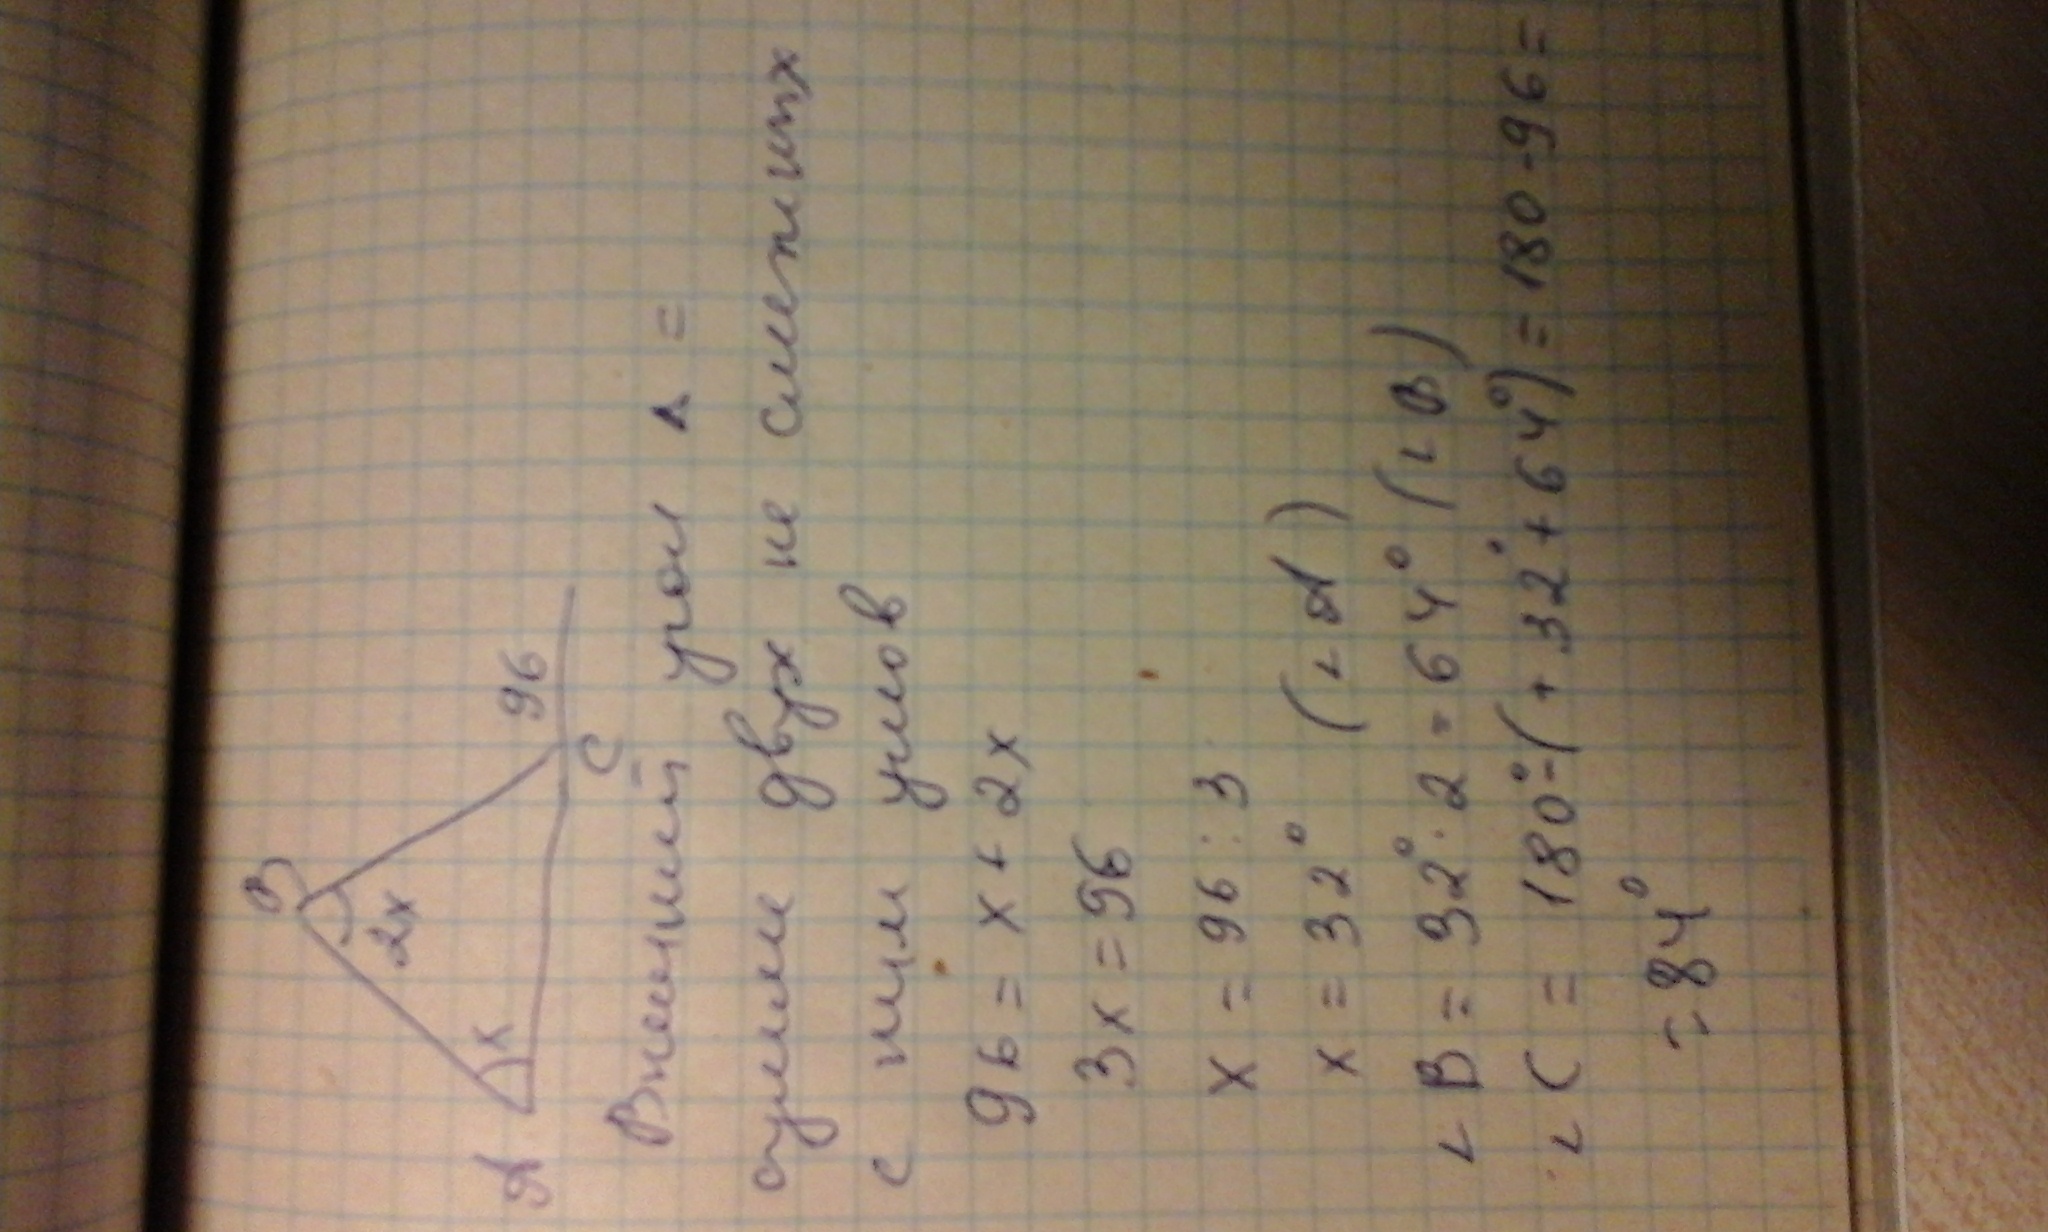 B
2x
A
x
96
C
Внешний угол ∆ =
сумме двух не смежных
с ним углов
96 = x + 2x
3x = 96
x = 96 : 3
x = 32° (∠A)
∠B = 32° · 2 = 64° (∠B)
∠C = 180° - (+ 32° + 64°) = 180 - 96 =
= 84°